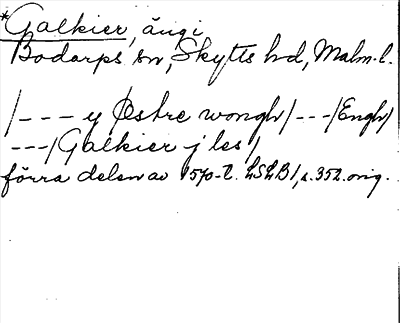 *Galkier, äng i
Bodarps sn, Skytts hd, Malm. l.
/--- y Østre wongh/---/Engh/
---/Galkier j les/
förra delen av 1570-t. LSLB 1, s. 352. orig.